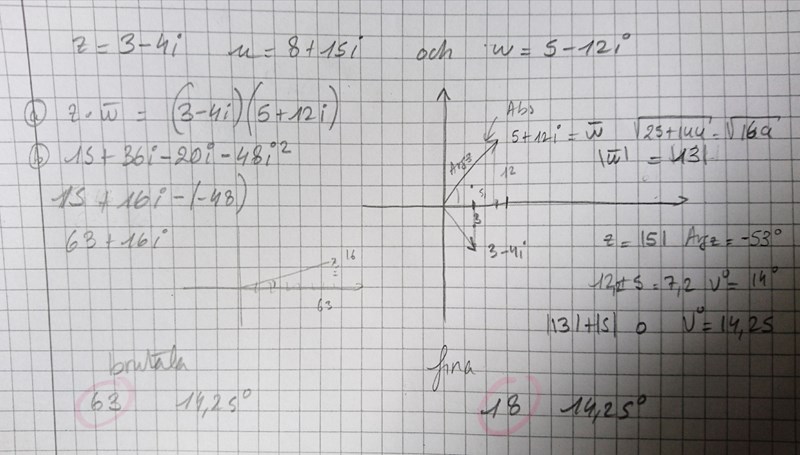 z = 3-4i u = 8+15i och w = 5-12i
a) z · w̅ = (3-4i)(5+12i)
b) 15+36i-20i-48i²
15+16i-(-48)
63+16i
16
63
Abs
5+12i = w̅ √25+144 = √169
|w̅| = |13|
12
3
3-4i
z = |5| Arg z = -53°
v° = 14°
|13|+|5| v° = 14,25
brutala
63 14,25°
fina
18 14,25°